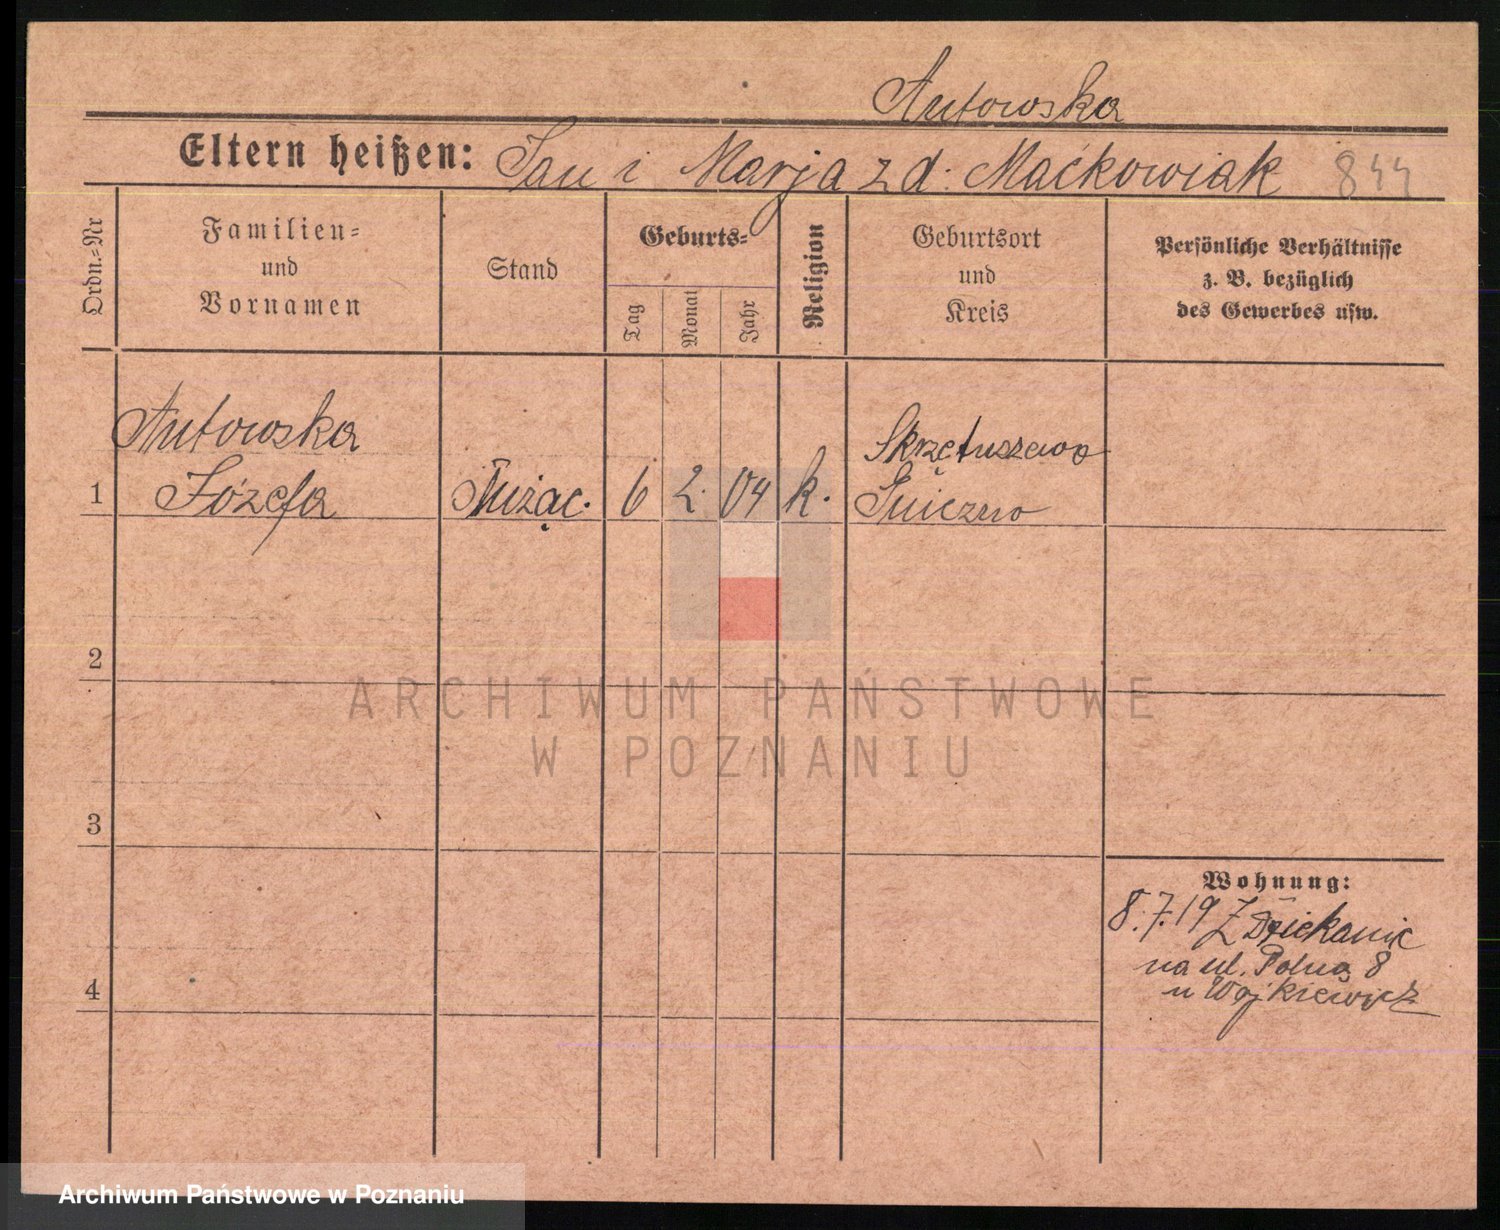 Antowska
Eltern heißen: Jan i Marja z d: Maćkowiak 844
Ordn.-Nr
Familien-
und
Vornamen
Stand
Geburts-
Tag
Monat
Jahr
Religion
Geburtsort
und
Kreis
Persönliche Verhältnisse
z. B. bezüglich
des Gewerbes usw.
Antowska
1 Józefa
Służąc. 6 2. 04 k.
Skrzetuszewo
Gniezno
2
3
4
Wohnung:
8.7.19 Z Dziekanic
na ul. Polną 8
u Wojkiewicz
ARCHIWUM PAŃSTWOWE
W POZNANIU
Archiwum Państwowe w Poznaniu